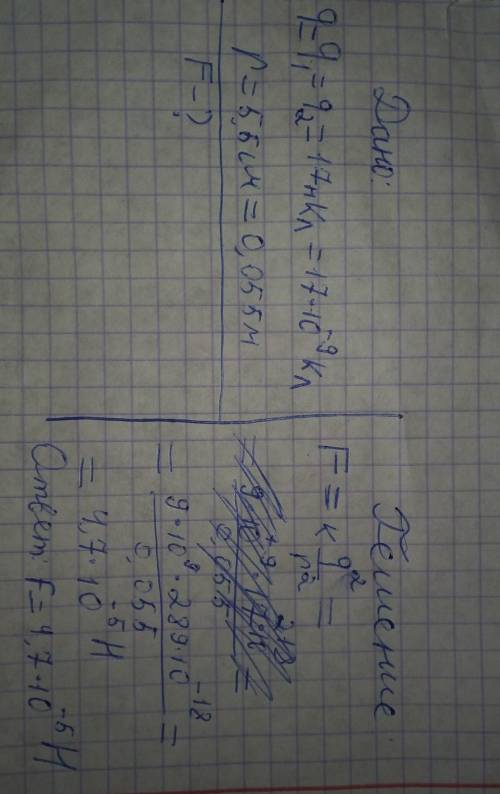 Дано:
q=q₁=q₂=17нКл=17·10⁻⁹Кл
r=5,5см=0,055м
F-?
Решение:
F=k q²/r²=
=9·10⁹·289·10⁻¹⁸/0,055=
=4,7·10⁻⁵Н
Ответ: F=4,7·10⁻⁵Н